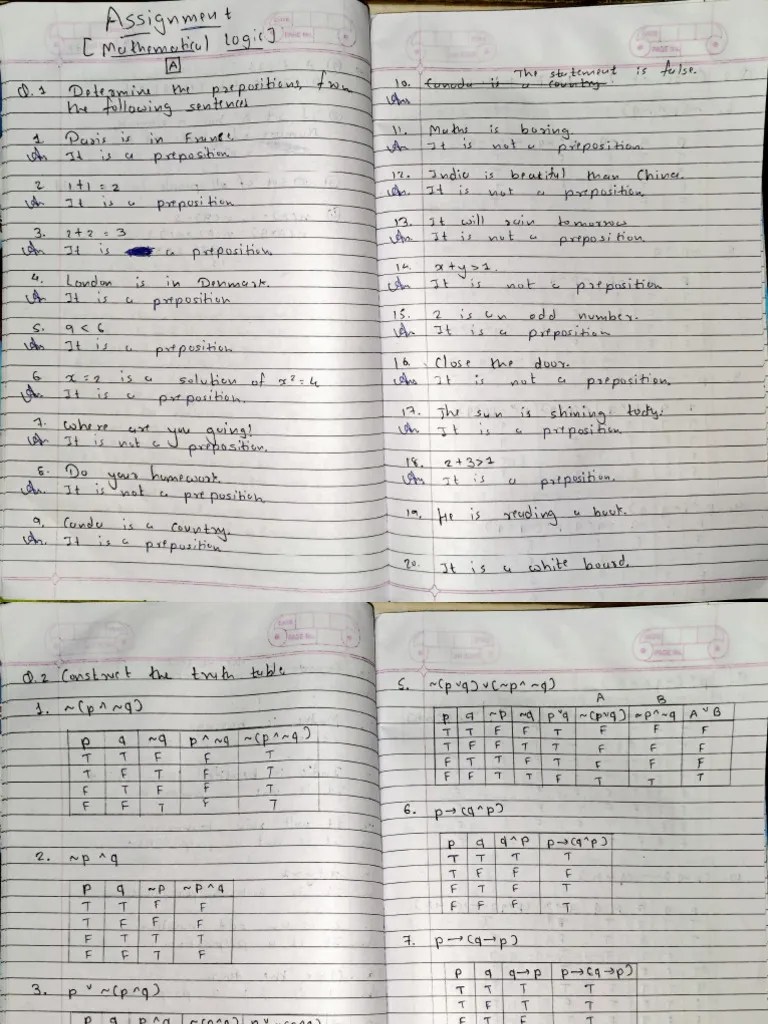 Assignment
[Mathematical logic]
A
Q.1 Determine the prepositions, from
the following sentences
1. Paris is in France.
An It is a preposition
2 1+1 = 2
An It is a preposition
3. 2+2 = 3
An It is a preposition
4. London is in Denmark.
An It is a preposition
5. 9 < 6
An It is a preposition
6 x=2 is a solution of x²=4
An It is a preposition.
7. Where are you going!
An It is not a preposition.
8. Do your homework.
An. It is not a preposition
9. Canda is a country.
An. It is a preposition
10. The statement is false.
Canada is a country
An
11. Maths is boring.
An It is not a preposition
12. India is beatiful than China.
An. It is not a preposition
13. It will rain tomorrow
An It is not a preposition
14. x+y>1.
An It is not a preposition
15. 2 is an odd number.
An It is a preposition
16. Close the door.
An. It is not a preposition.
17. The sun is shining
An. It is a preposition.
18. 2+3>1
An. It is a preposition.
19. He is reading a book.
20. It is a white board.
DATE
PAGE No.
Q.2 Construct the truth table
1. ~(p ^ ~q)
p q ~q p ^ ~q ~(p ^ ~q)
T T F F T
T F T F T
F T F F T
F F T F T
2. ~p ^ q
p q ~p ~p ^ q
T T F F
T F F F
F T T T
F F T F
3. p v ~(p ^ q)
p q p^q ~(p^q) p v ~(p^q)
5. ~(p v q) v (~p ^ ~q)
A B
p q ~p ~q p v q ~(p v q) ~p ^ ~q A v B
T T F F T F F F
T F F T T F F F
F T T F T F F F
F F T T F T T T
6. p→(q^p)
p q q^p p→(q^p)
T T T T
T F F F
F T F T
F F F T
7. p→(q→p)
p q q→p p→(q→p)
T T T T
T F T T
F T F T